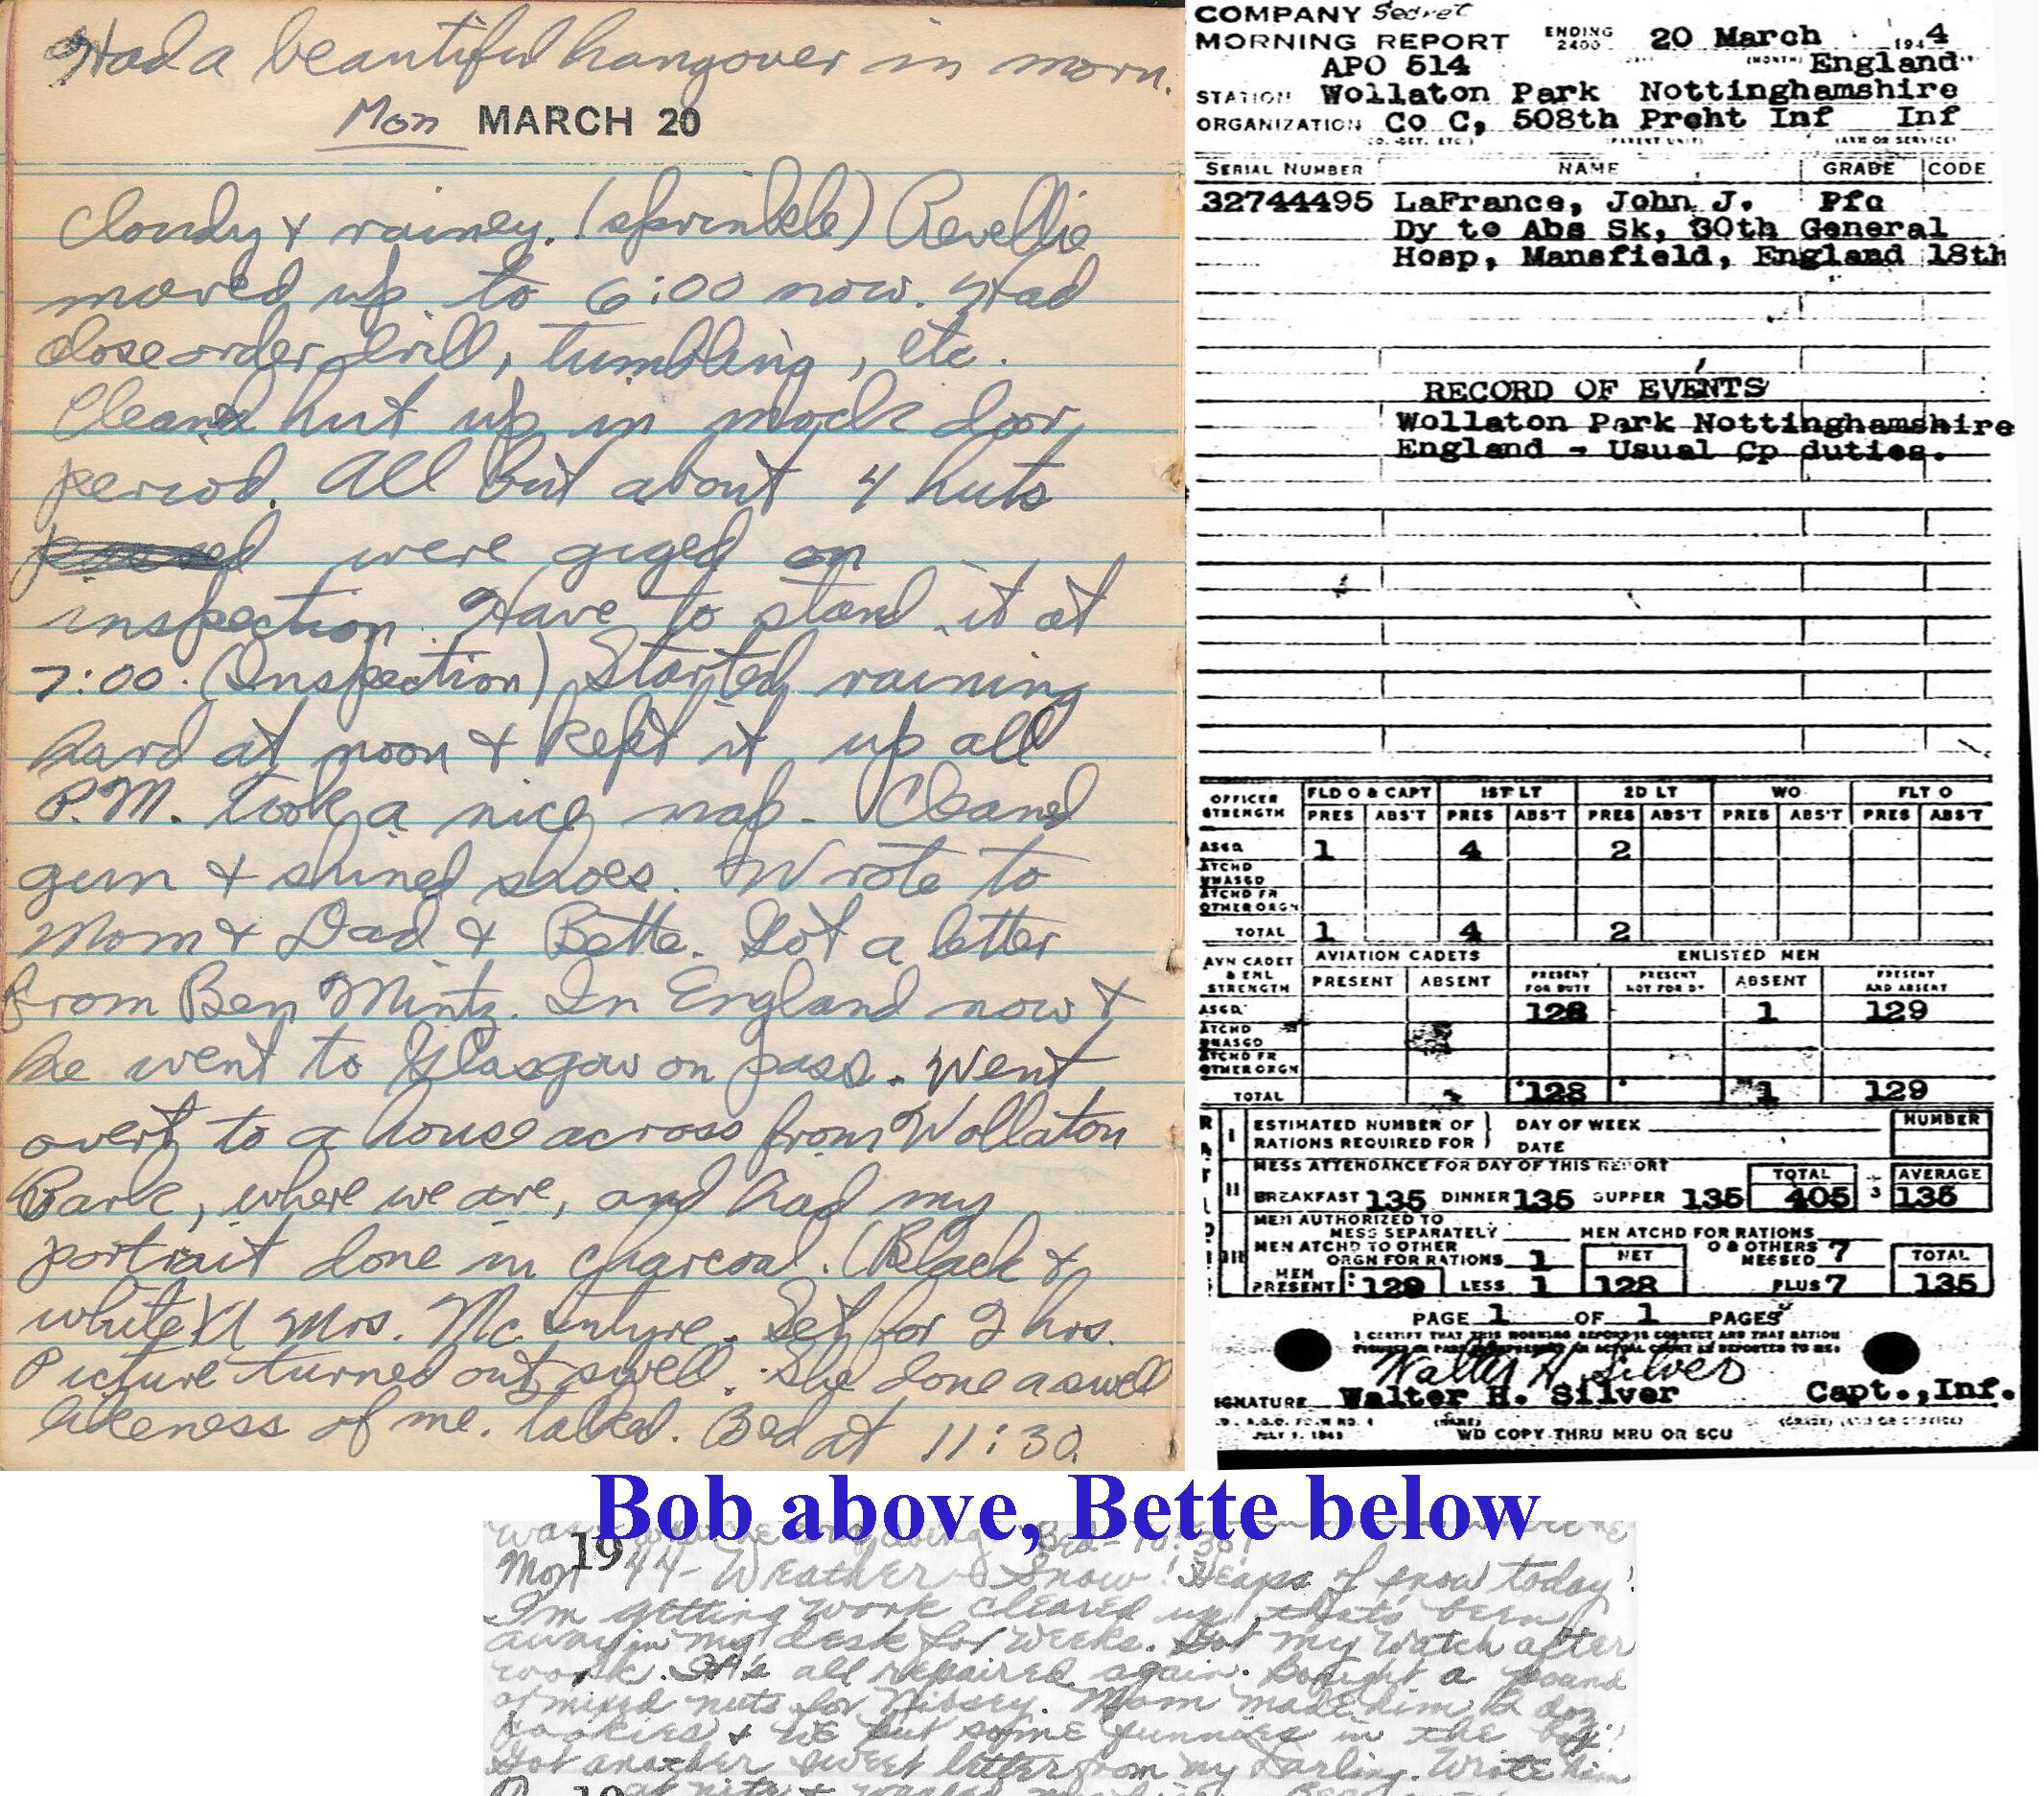 Had a beautiful hangover in morn.
Mon MARCH 20
Cloudy & rainey. (sprinkle) Revellie
moved up to 6:00 now. Had
close order drill, tumbling, etc.
Cleand hut up in mock door
period. All but about 4 huts
were giged on
inspection. Have to stand it at
7:00. (Inspection) Started raining
hard at noon & kept it up all
P.M. took a nice nap. Cleaned
gun & shined shoes. Wrote to
Mom & Dad & Bette. Got a letter
from Ben Mintz. In England now &
he went to Glasgow on pass. Went
over to a house across from Wollaton
Park, where we are, and had my
portrait done in charcoal. (Black &
white) Mrs. McIntyre. Set for 2 hrs.
Picture turned out swell. She done a swell
likeness of me. talked. Bed at 11:30.
COMPANY Secret
MORNING REPORT ENDING 2400 20 March 1944
APO 514 (MONTH) England
STATION Wollaton Park Nottinghamshire
ORGANIZATION Co C, 508th Prcht Inf Inf
(CO. DET. ETC.) (PARENT UNIT) (ARM OR SERVICE)
SERIAL NUMBER NAME GRADE CODE
32744495 LaFrance, John J. Pfc
Dy to Abs Sk, 30th General
Hosp, Mansfield, England 18th
RECORD OF EVENTS
Wollaton Park Nottinghamshire
England - Usual Cp duties.
OFFICER STRENGTH FLD O & CAPT 1ST LT 2D LT WO FLT O
PRES ABS'T PRES ABS'T PRES ABS'T PRES ABS'T PRES ABS'T
ASGD 1 4 2
ATCHD UNASGD
ATCHD FR OTHER ORGN
TOTAL 1 4 2
AVN CADET & ENL STRENGTH AVIATION CADETS ENLISTED MEN
PRESENT ABSENT PRESENT FOR DUTY PRESENT NOT FOR DY ABSENT PRESENT AND ABSENT
ASGD 128 1 129
ATCHD UNASGD
ATCHD FR OTHER ORGN
TOTAL 128 1 129
I ESTIMATED NUMBER OF RATIONS REQUIRED FOR DAY OF WEEK DATE NUMBER
MESS ATTENDANCE FOR DAY OF THIS REPORT TOTAL AVERAGE
II BREAKFAST 135 DINNER 135 SUPPER 135 405 ÷ 3 135
MEN AUTHORIZED TO MESS SEPARATELY MEN ATCHD FOR RATIONS
III MEN ATCHD TO OTHER ORGN FOR RATIONS 1 NET O & OTHERS MESSED 7 TOTAL
MEN PRESENT 129 LESS 1 128 PLUS 7 135
PAGE 1 OF 1 PAGES
I CERTIFY THAT THIS MORNING REPORT IS CORRECT AND THAT RATION
Walter H Silver
SIGNATURE Walter H. Silver Capt., Inf.
W.D., A.G.O. FORM NO. 1 (NAME) (GRADE) (ARM OR SERVICE)
JULY 1, 1943 WD COPY THRU MRU OR SCU
Bob above, Bette below
Bed - 10:30!
Mon 1944 - Weather - Snow! Heaps of snow today!
I'm getting work cleared up that's been
away in my desk for weeks. Got my watch after
work. It's all repaired again. Bought a pound
of mixed nuts for Mom made him doz
cookies & we put some funnies in the box!
Got another sweet letter from my Darling. Wrote him
19 at nite &